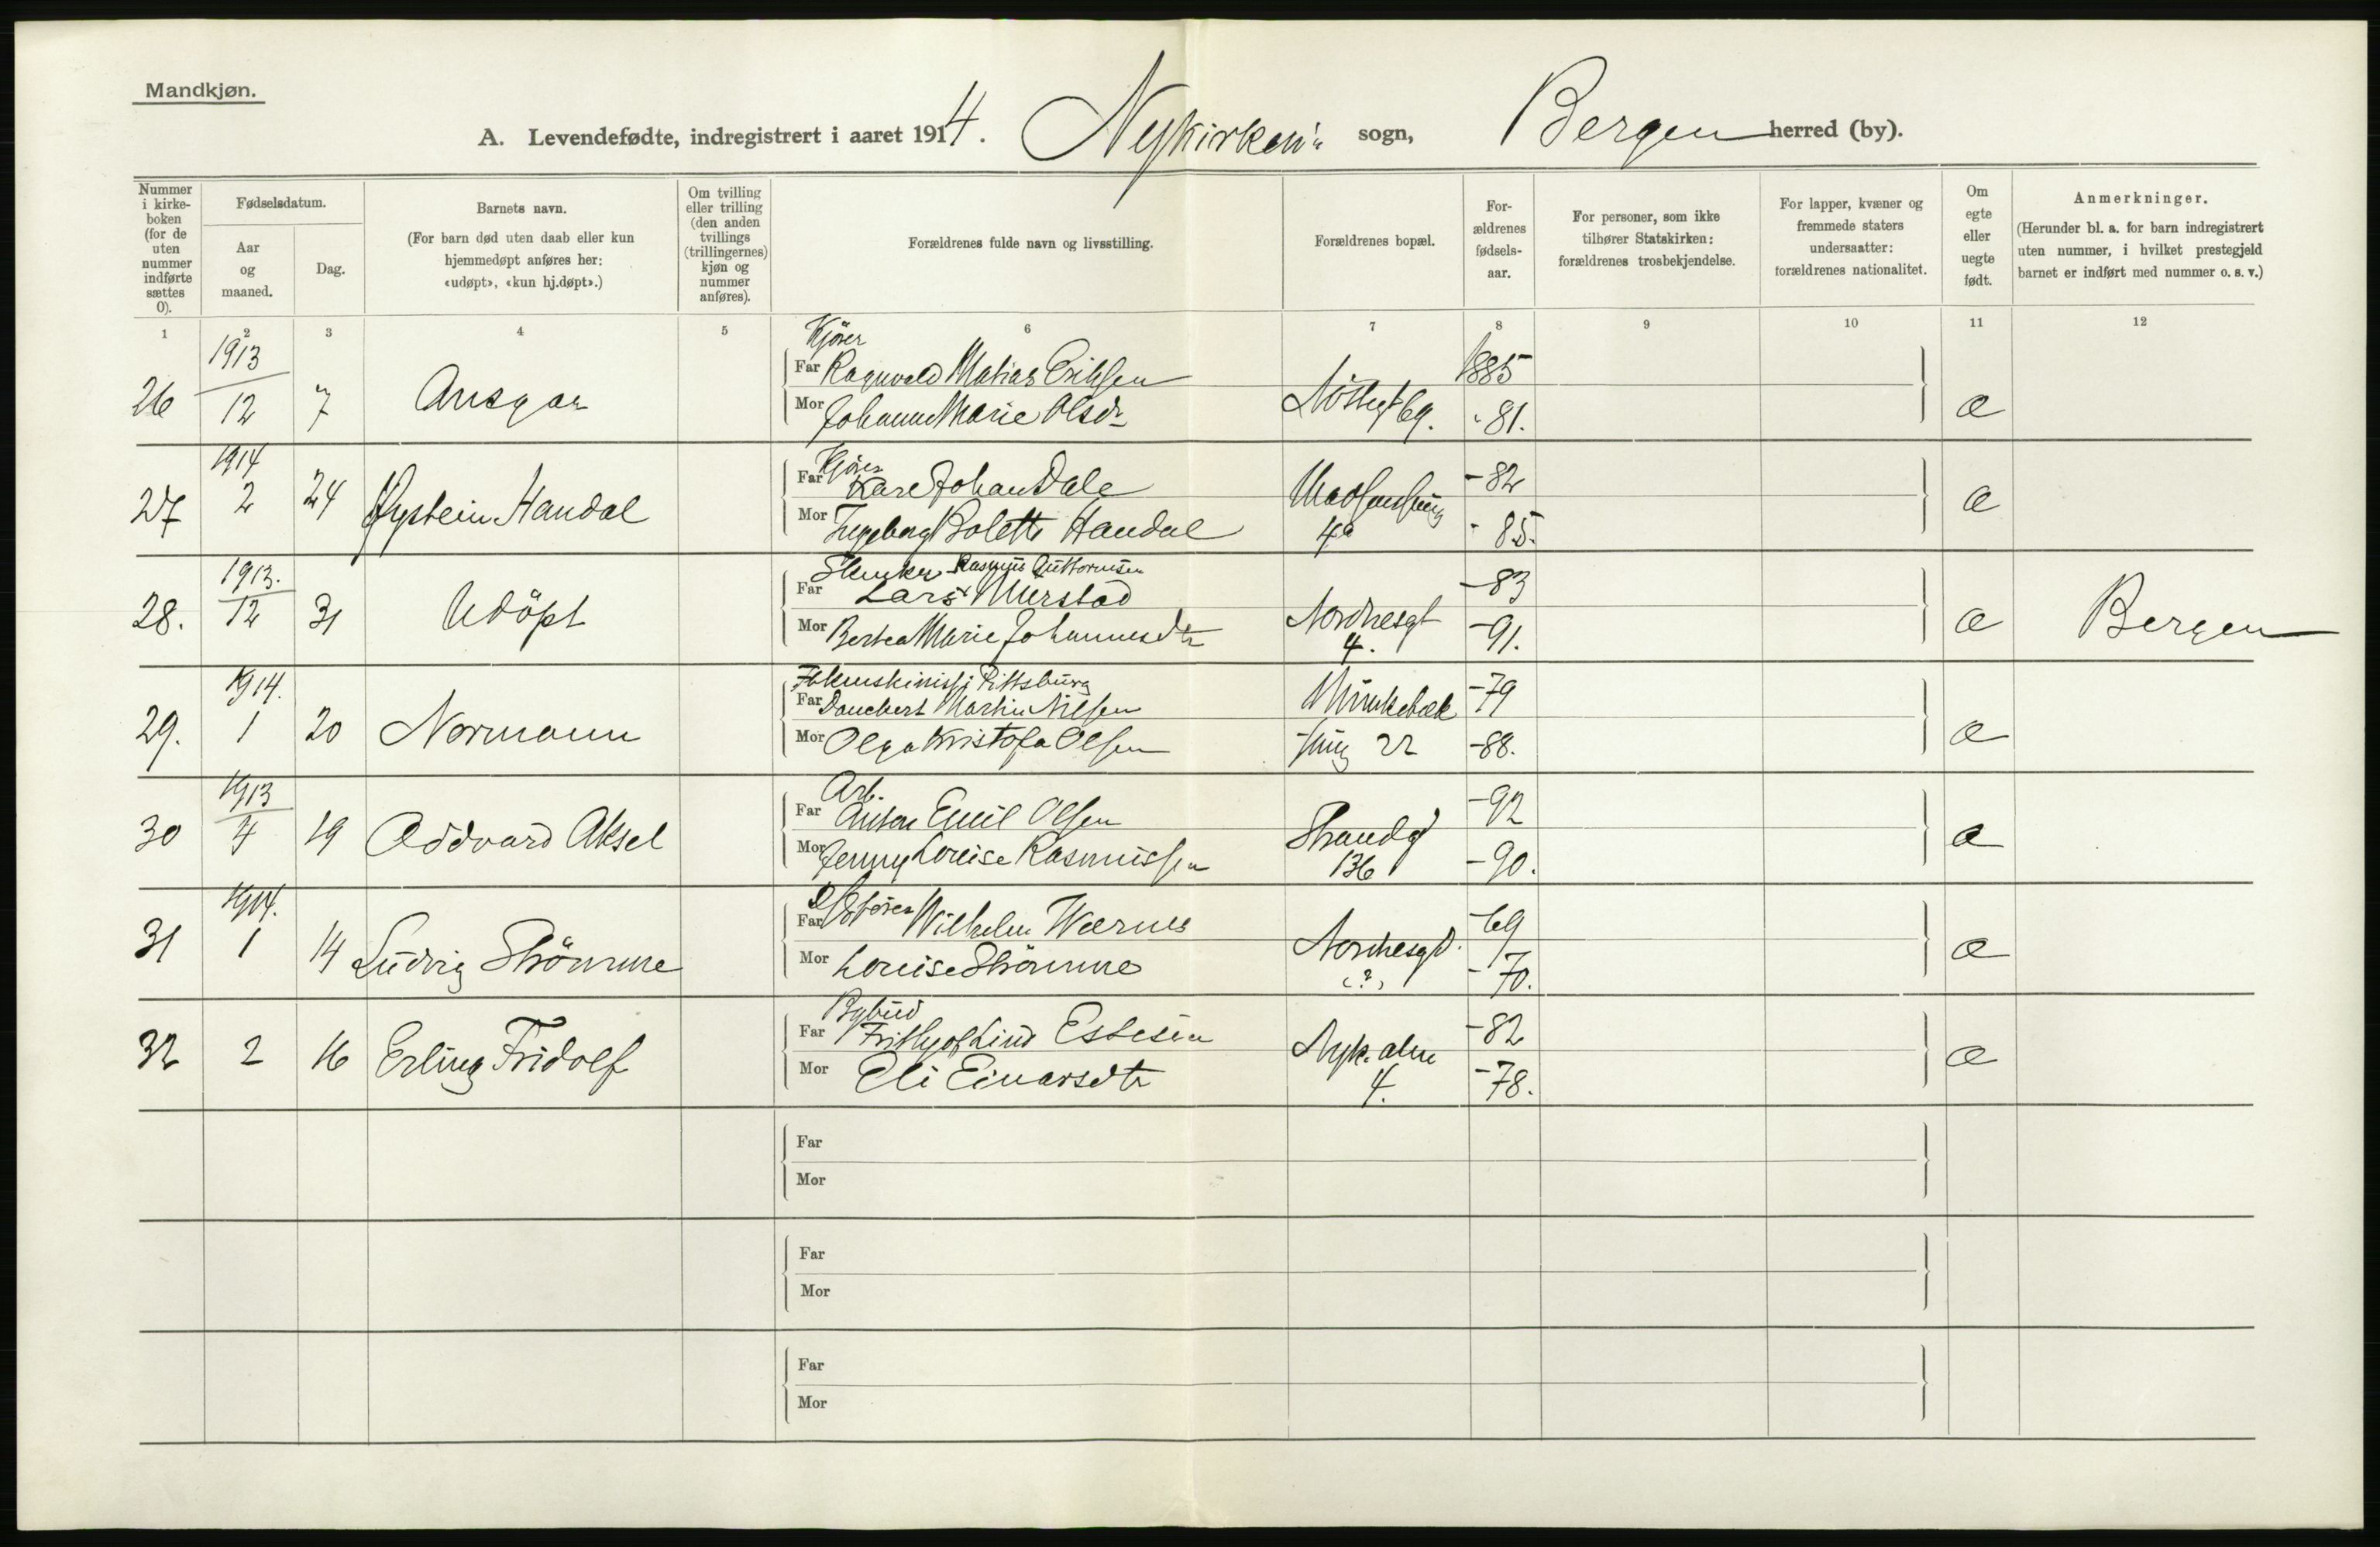 Mandkjøn.
A. Levendefødte, indregistrert i aaret 1914. Nykirken's sogn, Bergen herred (by).
Nummer i kirke-boken (for de uten nummer indførte sættes 0).
Fødselsdatum.
Aar og maaned.
Dag.
Barnets navn.
(For barn død uten daab eller kun hjemmedøpt anføres her: «udøpt», «kun hj.døpt».)
Om tvilling eller trilling (den anden tvillings (trillingernes) kjøn og nummer anføres).
Forældrenes fulde navn og livsstilling.
Forældrenes bopæl.
For-ældrenes fødsels-aar.
For personer, som ikke tilhører Statskirken: forældrenes trosbekjendelse.
For lapper, kvæner og fremmede staters undersaatter: forældrenes nationalitet.
Om egte eller uegte født.
Anmerkninger.
(Herunder bl. a. for barn indregistrert uten nummer, i hvilket prestegjeld barnet er indført med nummer o. s. v.)
1 2 3 4 5 6 7 8 9 10 11 12
1913 Kjører
Far Ragnvald Matias Eriksen 1885
26 12 7 Ansgar Nöstegt 69. e
Mor Johanne Marie Olsdr - 81.
1914 Kjører
Far Kare Johan Dale - 82
27 2 24 Øystein Handal 4a e
Mor Ingeborg Bolette Handal - 85.
1913. Rasmus Guttormsen
Far Lars Murstad - 83
28. 12 31 Udöpt Nordnesgt 4. e Bergen
Mor Bertea Marie Johannesdtr - 91.
1914. Pittsburg
Far Danebert Martin Nilsen - 79
29. 1 20 Normann 22 e
Mor Olga Kristofa Olsen - 88.
1913 Arb.
Far Anton Emil Olsen - 92
30 4 19 Oddvard Aksel Strandgt 136 e
Mor Jenny Louise Rasmussen - 90.
1914.
Far Wilhelm Wærnes - 69
31 1 14 Ludvig Strömme Nordnesgt. (?) e
Mor Louise Strömme - 70.
Bybud
Far Frithjof Lind Estesen - 82
32 2 16 Erling Fridolf Nyk. alm 4. e
Mor Eli Einarsdtr - 78.
Far
Mor
Far
Mor
Far
Mor